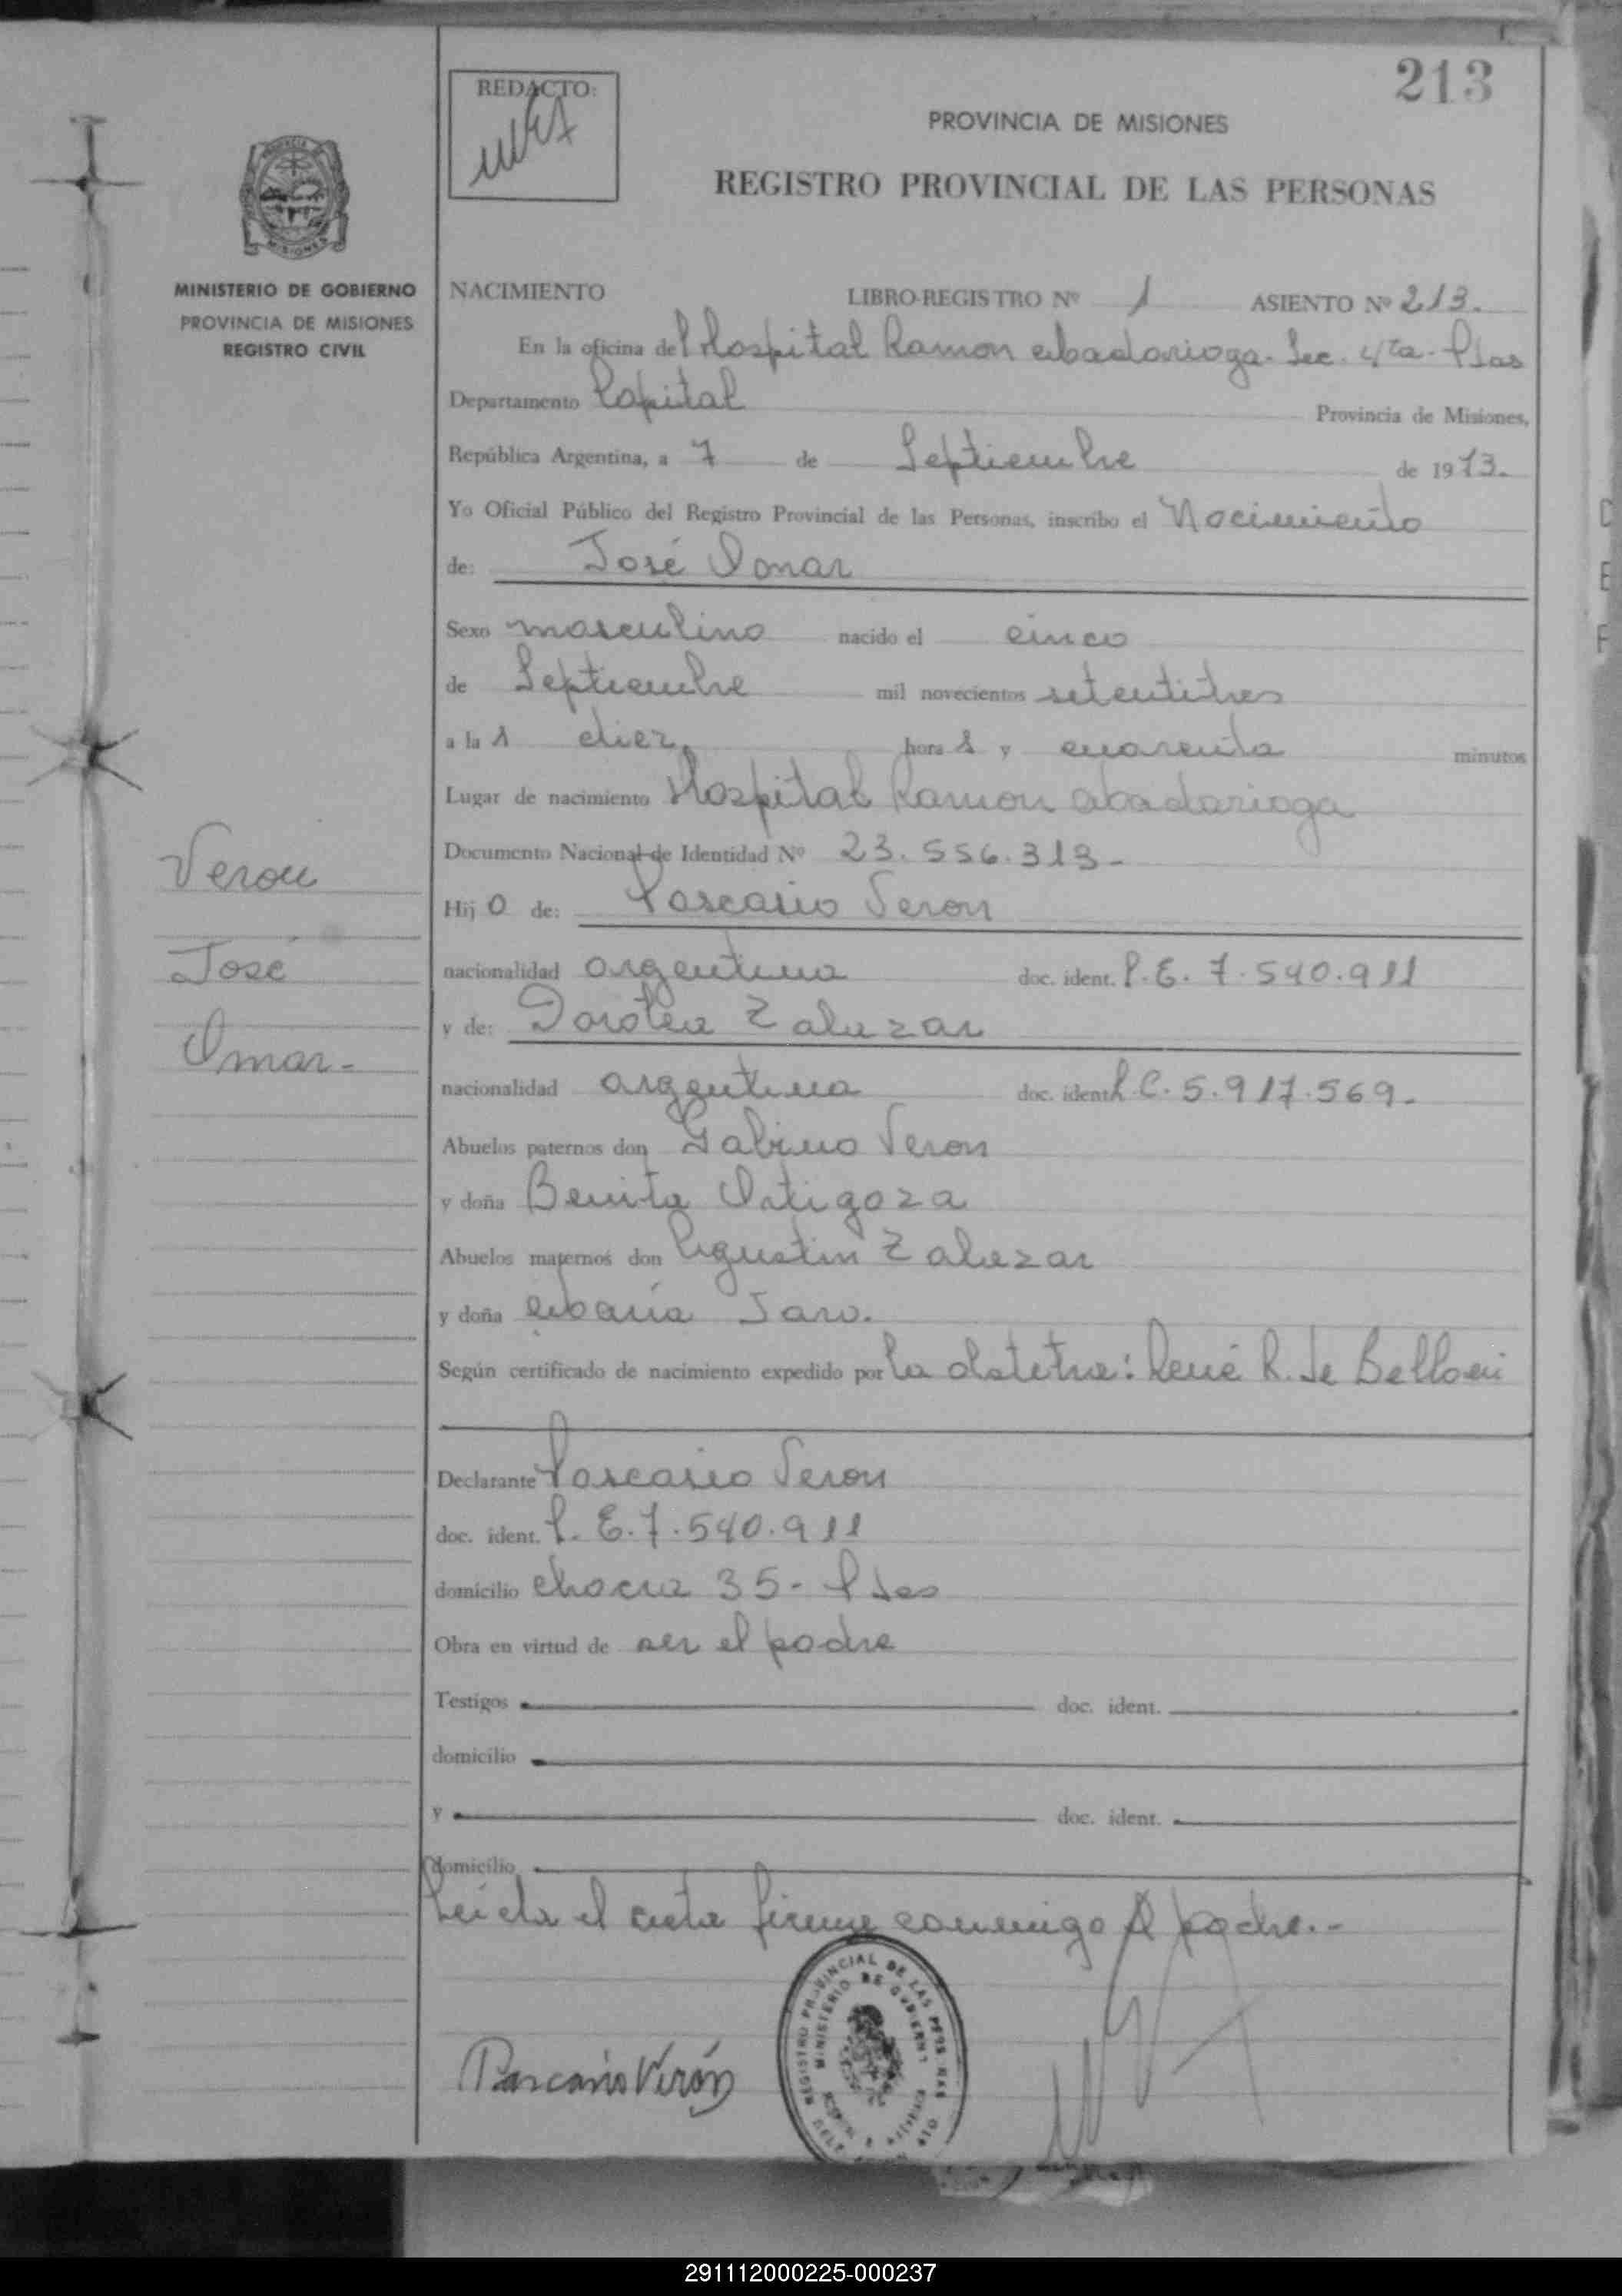 213
REDACTO:
PROVINCIA DE MISIONES
REGISTRO PROVINCIAL DE LAS PERSONAS
MISIONES
MINISTERIO DE GOBIERNO
PROVINCIA DE MISIONES
REGISTRO CIVIL
NACIMIENTO LIBRO-REGISTRO Nº 1 ASIENTO Nº 213.
En la oficina del Hospital Ramon Madariaga. Sec. 4ta. Psas
Departamento Capital Provincia de Misiones,
República Argentina, a 7 de Septiembre de 1973.
Yo Oficial Público del Registro Provincial de las Personas, inscribo el Nacimiento
de: José Omar
Sexo masculino nacido el cinco
de Septiembre mil novecientos setentitres
a las diez horas y cuarenta minutos
Lugar de nacimiento Hospital Ramon Madariaga
Documento Nacional de Identidad Nº 23.556.313-
Hijo de: Pascasio Veron
nacionalidad argentina doc. ident. L.E. 7.540.911
y de: Dorotea Zalazar
nacionalidad argentina doc. ident. L.C. 5.917.569.
Abuelos paternos don Gabino Veron
y doña Benita Ortigoza
Abuelos maternos don Agustin Zalazar
y doña María
Según certificado de nacimiento expedido por la obstetra: René R. de Belloni
Declarante Pascasio Veron
doc. ident. L.E. 7.540.911
domicilio chacra 35- Psas
Obra en virtud de ser el padre
Testigos doc. ident.
domicilio
y doc. ident.
domicilio
Leida el acta firma conmigo el padre.-
Veron
José
Omar-
Pascasio Verón
REGISTRO PROVINCIAL DE LAS PERSONAS
MINISTERIO DE GOBIERNO
291112000225-000237